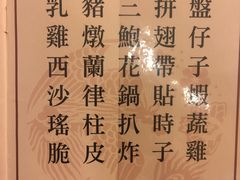 乳豬三拼盤
雞燉鮑翅仔
西蘭花帶子
沙律鍋貼蝦
瑤柱扒時蔬
脆皮炸子雞